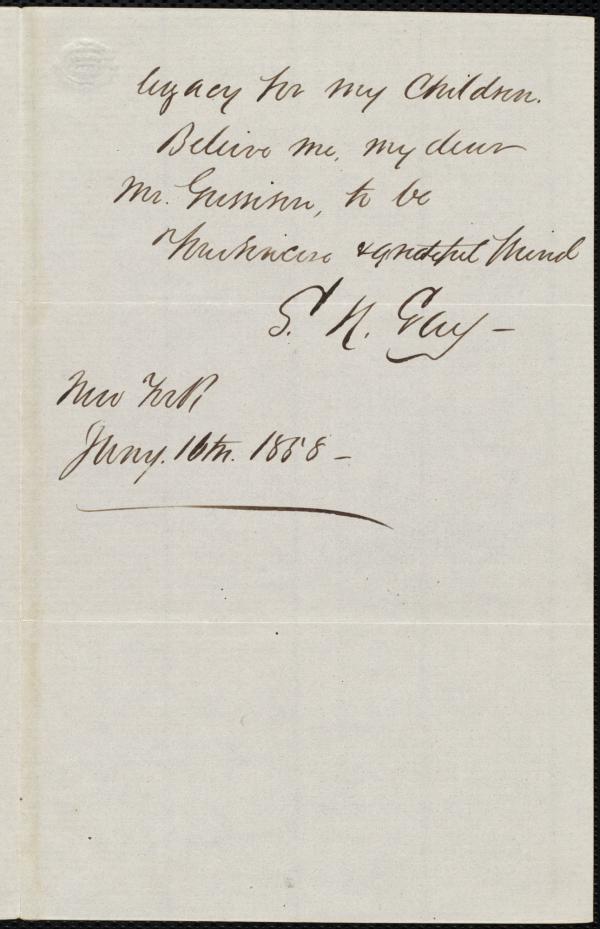 legacy for my Children.
Believe me, my dear
Mr. Garrison, to be
Your sincere & grateful friend
S. H. Gay –
New York
Jany. 16th. 1858 –